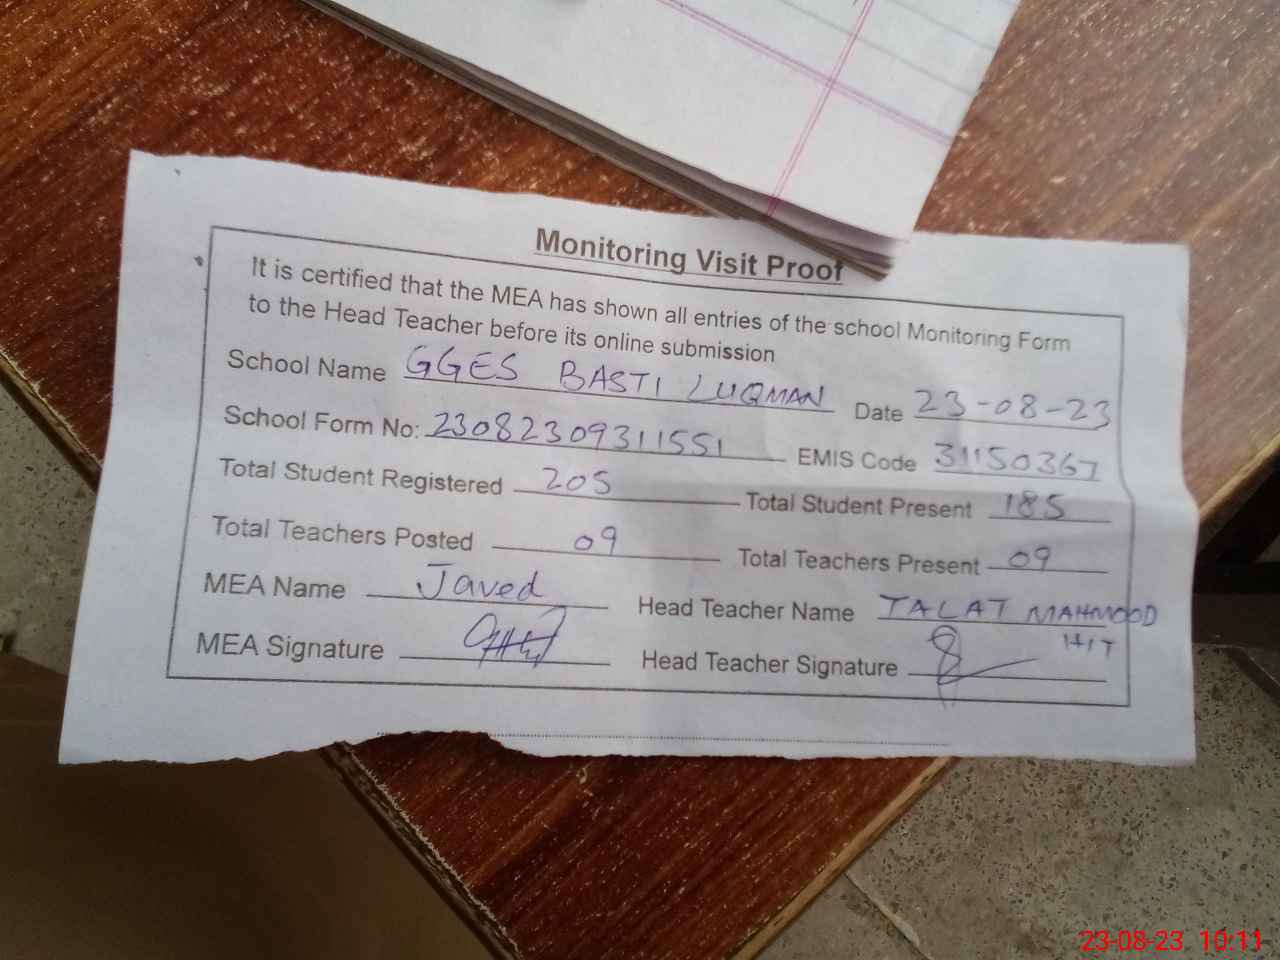 Monitoring Visit Proof
It is certified that the MEA has shown all entries of the school Monitoring Form
to the Head Teacher before its online submission
School Name GGES BASTI LUQMAN Date 23-08-23
School Form No: 23082309311551 EMIS Code 31150367
Total Student Registered 205 Total Student Present 185
Total Teachers Posted 09 Total Teachers Present 09
MEA Name Javed Head Teacher Name TALAT MAHMOOD
MEA Signature Head Teacher Signature H/T
23-08-23 10:11